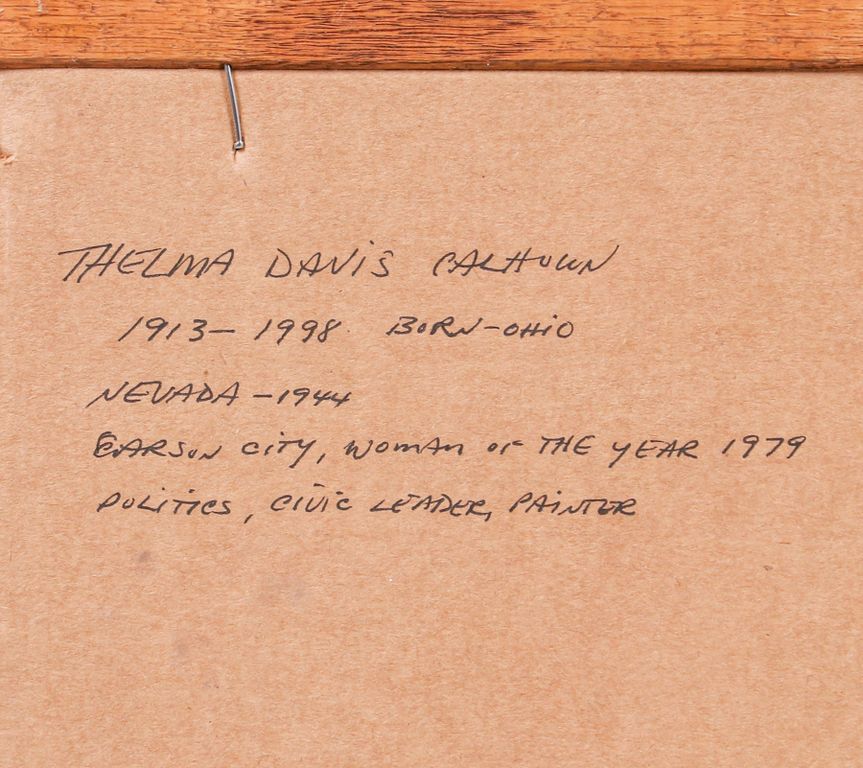 THELMA DAVIS CALHOUN
1913 - 1998 BORN - OHIO
NEVADA - 1944
CARSON CITY, WOMAN OF THE YEAR 1979
POLITICS, CIVIC LEADER, PAINTER